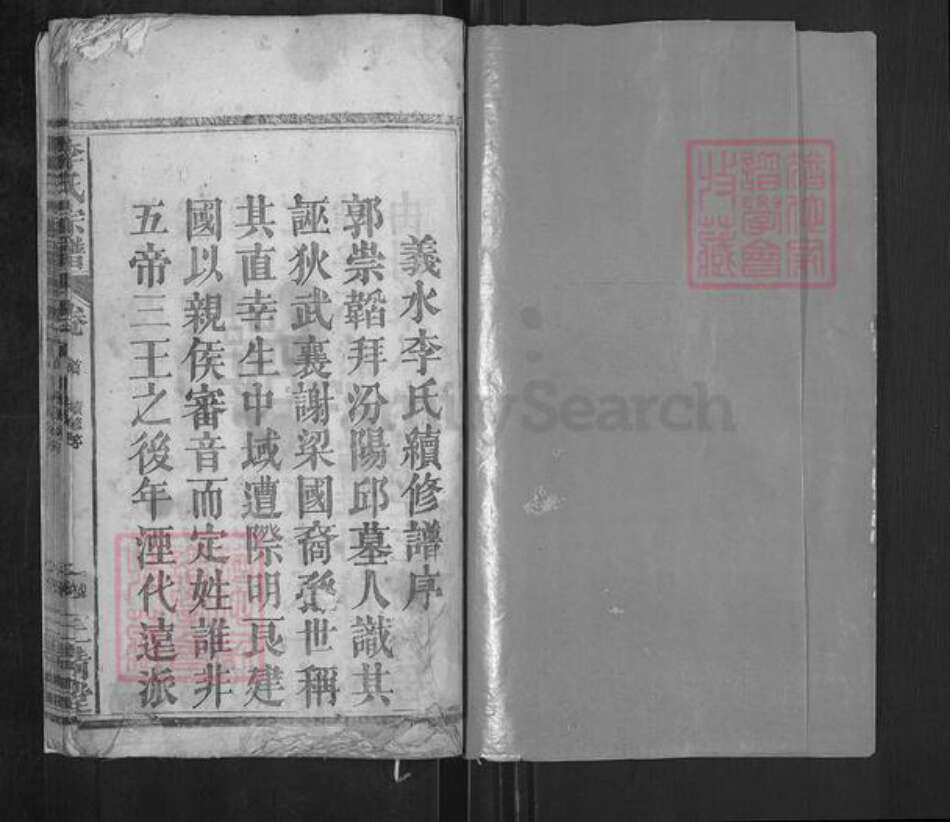 義水李氏續修譜序
郭崇韜拜汾陽邱墓人識其
誣狄武襄謝梁國裔孫世稱
其直幸生中域遭際明良建
國以親侯審音而定姓誰非
五帝三王之後年湮代遠派
李氏宗譜
FamilySearch